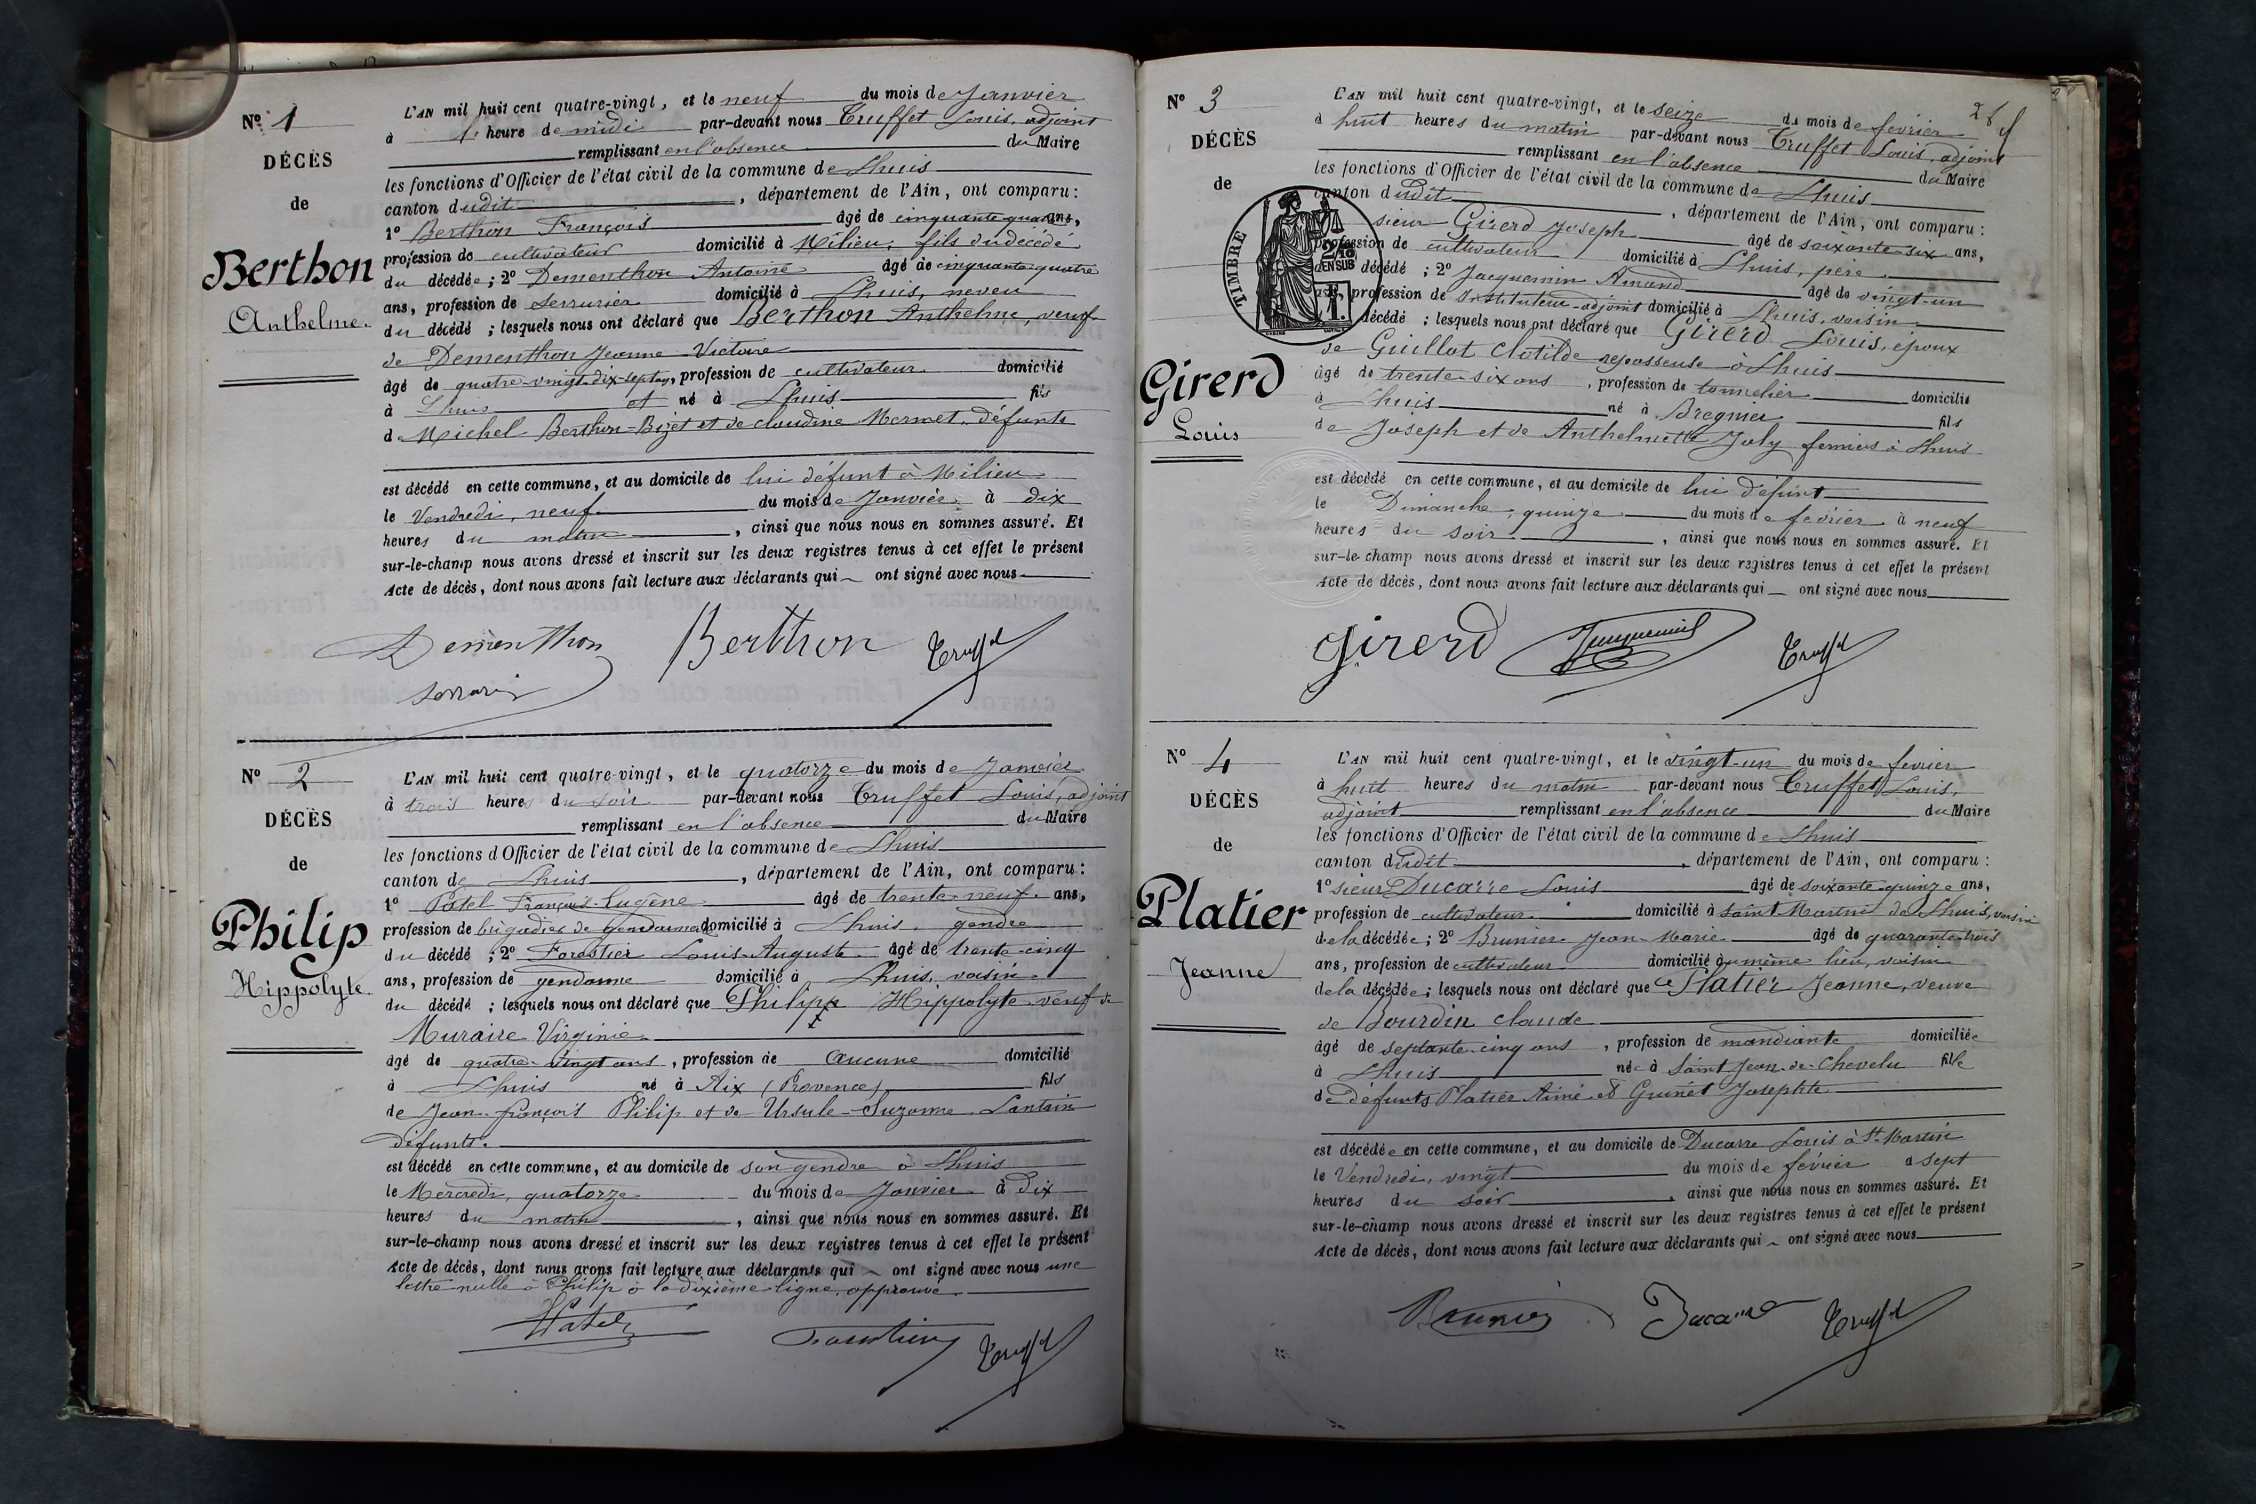 Nº 1
DÉCÈS
de
Berthon
Anthelme.
L'AN mil huit cent quatre-vingt, et le neuf du mois de Janvier
à 1 heure de midi par-devant nous Truffet Louis, adjoint
remplissant en l'absence du Maire
les fonctions d'Officier de l'état civil de la commune de Lhuis
canton dudit , département de l'Ain, ont comparu :
1º Berthon François âgé de cinquante quatre ans,
profession de cultivateur domicilié à Milieu, fils du décédé
du décédé ; 2º Dementhon Antoine âgé de cinquante-quatre
ans, profession de serrurier domicilié à Lhuis, neveu
du décédé ; lesquels nous ont déclaré que Berthon Anthelme, veuf
de Dementhon Jeanne Victoire
âgé de quatre-vingt-dix-sept ans, profession de cultivateur domicilié
à Lhuis et né à Lhuis fils
de Michel Berthon-Bizet et de Claudine Mermet, défunts
est décédé en cette commune, et au domicile de lui défunt à Milieu
le Vendredi, neuf du mois de Janvier à dix
heures du matin , ainsi que nous nous en sommes assuré. Et
sur-le-champ nous avons dressé et inscrit sur les deux registres tenus à cet effet le présent
Acte de décès, dont nous avons fait lecture aux déclarants qui ont signé avec nous
Dementhon Berthon Truffet
serrurier
Nº 2
DÉCÈS
de
Philip
Hippolyte.
L'AN mil huit cent quatre-vingt, et le quatorze du mois de Janvier
à trois heures du soir par-devant nous Truffet Louis, adjoint
remplissant en l'absence du Maire
les fonctions d'Officier de l'état civil de la commune de Lhuis
canton de Lhuis , département de l'Ain, ont comparu :
1º Patel François-Eugène âgé de trente-neuf ans,
profession de brigadier de gendarmerie domicilié à Lhuis, gendre
du décédé ; 2º Forestier Louis-Auguste âgé de trente-cinq
ans, profession de gendarme domicilié à Lhuis, voisin
du décédé ; lesquels nous ont déclaré que Philipp Hippolyte veuf de
Muraire Virginie
âgé de quatre-vingt ans , profession de aucune domicilié
à Lhuis né à Aix (Provence) fils
de Jean-françois Philip et de Ursule-Suzanne
défunts.
est décédé en cette commune, et au domicile de son gendre à Lhuis
le Mercredi, quatorze du mois de Janvier à dix
heures du matin , ainsi que nous nous en sommes assuré. Et
sur-le-champ nous avons dressé et inscrit sur les deux registres tenus à cet effet le présent
Acte de décès, dont nous avons fait lecture aux déclarants qui ont signé avec nous une
lettre nulle à Philip à la dixième ligne, approuvé
Patel Forestier Truffet
Nº 3
DÉCÈS
de
Girerd
Louis
TIMBRE
2/10
EN SUS
1
L'AN mil huit cent quatre-vingt, et le seize du mois de février
à huit heures du matin par-devant nous Truffet Louis, adjoint
remplissant en l'absence du Maire
les fonctions d'Officier de l'état civil de la commune de Lhuis
canton dudit , département de l'Ain, ont comparu :
sieur Girerd Joseph âgé de soixante-six ans,
profession de cultivateur domicilié à Lhuis, père
du décédé ; 2º Jacquemin Amand âgé de vingt-un
ans, profession de instituteur-adjoint domicilié à Lhuis, voisin
décédé ; lesquels nous ont déclaré que Girerd Louis, époux
de Guillot Clotilde repasseuse à Lhuis
âgé de trente-six ans , profession de tonnelier domicilié
à Lhuis né à Bregnier fils
de Joseph et de Anthelmette Joly fermiers à Lhuis
est décédé en cette commune, et au domicile de lui défunt
le Dimanche, quinze du mois de février à neuf
heures du soir , ainsi que nous nous en sommes assuré. Et
sur-le-champ nous avons dressé et inscrit sur les deux registres tenus à cet effet le présent
Acte de décès, dont nous avons fait lecture aux déclarants qui ont signé avec nous
Girerd Jacquemin Truffet
Nº 4
DÉCÈS
de
Platier
Jeanne
L'AN mil huit cent quatre-vingt, et le vingt-un du mois de février
à huit heures du matin par-devant nous Truffet Louis,
adjoint remplissant en l'absence du Maire
les fonctions d'Officier de l'état civil de la commune de Lhuis
canton dudit , département de l'Ain, ont comparu :
1º sieur Ducarre Louis âgé de soixante-quinze ans,
profession de cultivateur domicilié à Saint Martin de Lhuis, voisin
de la décédée ; 2º Brunier Jean-Marie âgé de quarante-trois
ans, profession de cultivateur domicilié au même lieu, voisin
de la décédée ; lesquels nous ont déclaré que Platier Jeanne, veuve
de Bourdin Claude
âgé de septante-cinq ans , profession de mandiante domiciliée
à Lhuis née à Saint Jean-de-Chevelu fille
de défunts Platier Aimé et Guinet Josephte
est décédée en cette commune, et au domicile de Ducarre Louis à St Martin
le Vendredi, vingt du mois de février à sept
heures du soir , ainsi que nous nous en sommes assuré. Et
sur-le-champ nous avons dressé et inscrit sur les deux registres tenus à cet effet le présent
Acte de décès, dont nous avons fait lecture aux déclarants qui ont signé avec nous
Brunier Ducarre Truffet